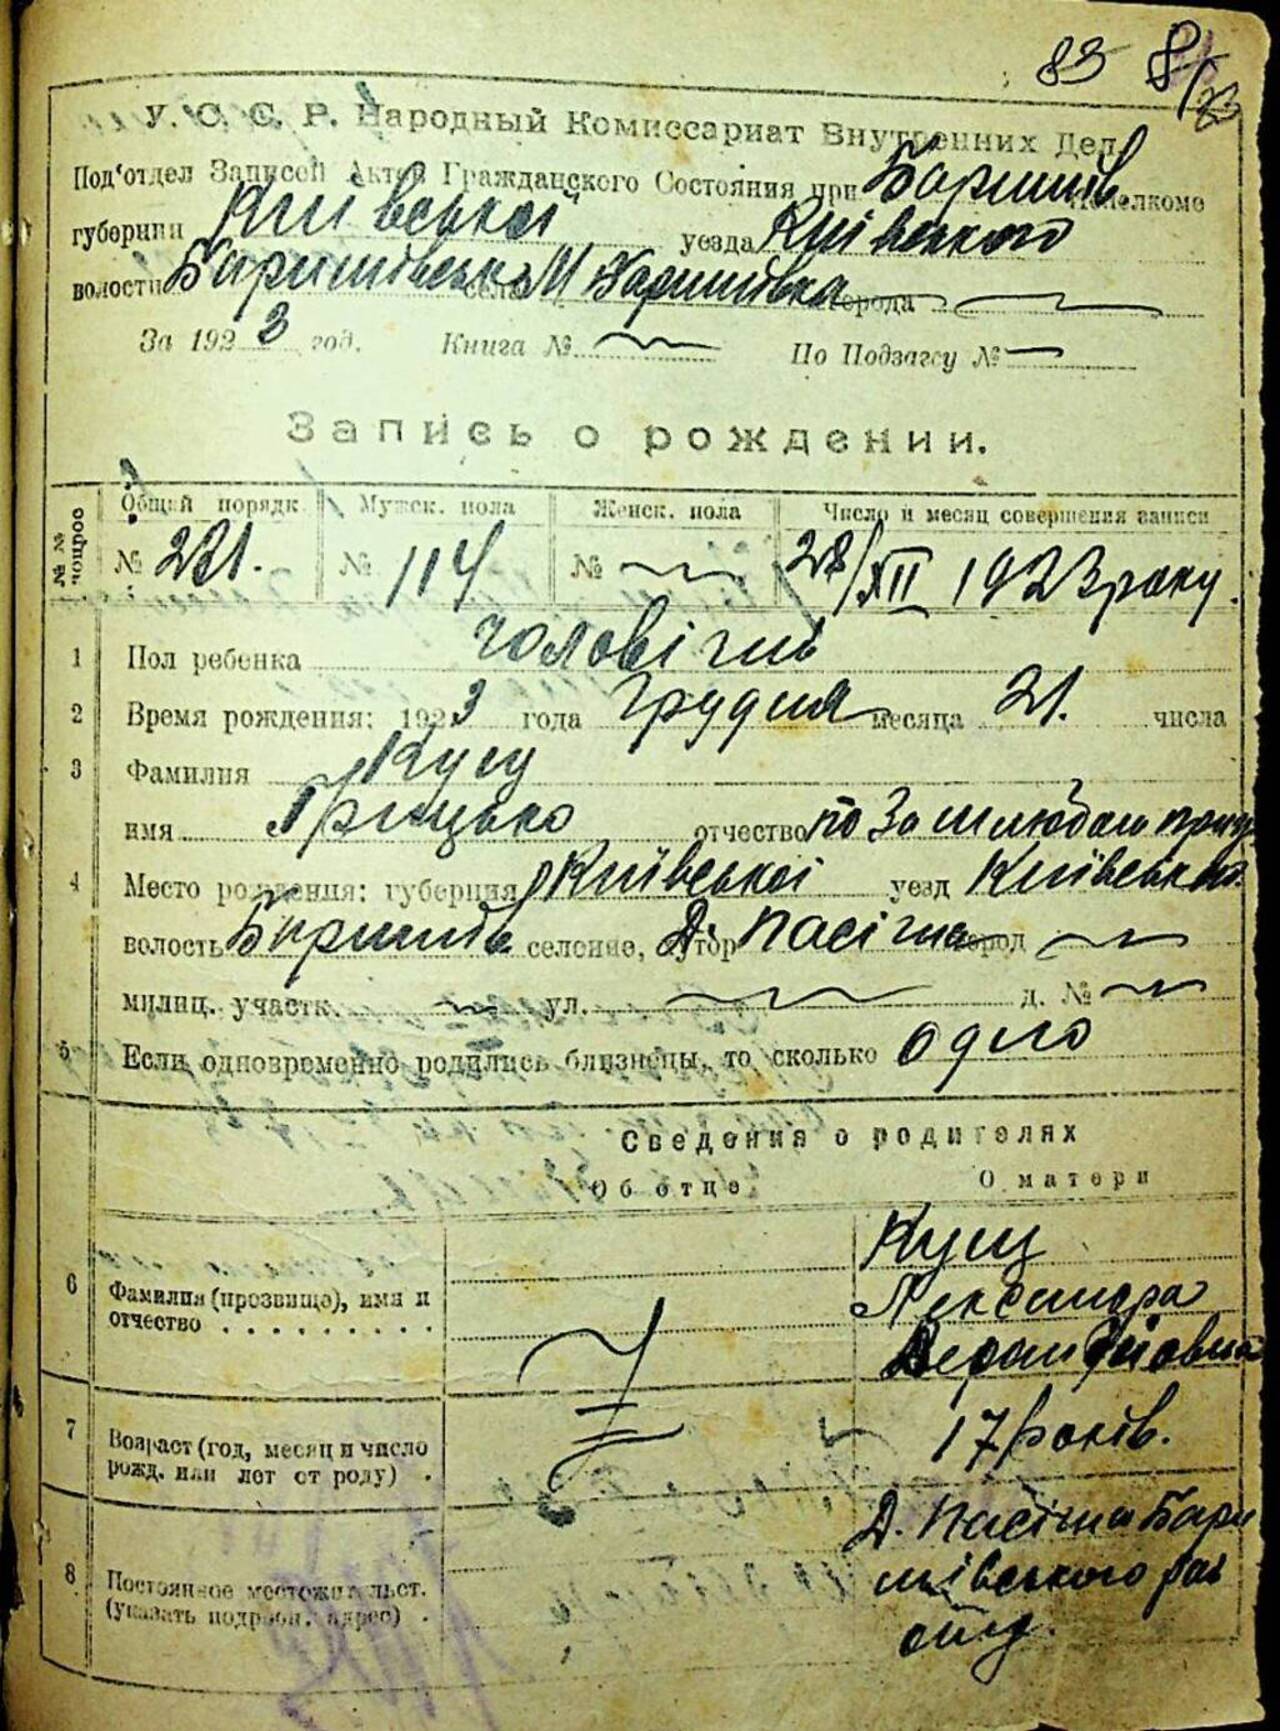 83
У. С. С. Р. Народный Комиссариат Внутренних Дел.
Под'отдел Записей Актов Гражданского Состояния при Баришів Исполкоме
губернии Київської уезда Київського
волости Баришівсько села М Баришівка города
За 1923 год. Книга № По Подзагсу №
Запись о рождении.
№ № вопрос Общий порядк. Мужск. пола Женск. пола Число и месяц совершения записи
№ 221. № 114 № 28/XII 1923 року.
1 Пол ребенка чоловічий
2 Время рождения: 1923 года грудня месяца 21. числа
3 Фамилия Кущ
имя Грицько отчество по
4 Место рождения: губерния Київської уезд Київського
волость Баришів. селение, хутор Д. Пасічна город
милиц. участк. ул. д. №
5 Если одновременно родились близнецы, то сколько одно
Сведения о родителях
Об отце О матери
Кущ
6 Фамилия (прозвище), имя и отчество . . . . . . . . . .
Александра
7 Возраст (год, месяц и число рожд. или лет от роду) . 17 років.
8 Постоянное местожительст. (указать подробн. адрес) .
Д. Пасічна Бари
шівського рай